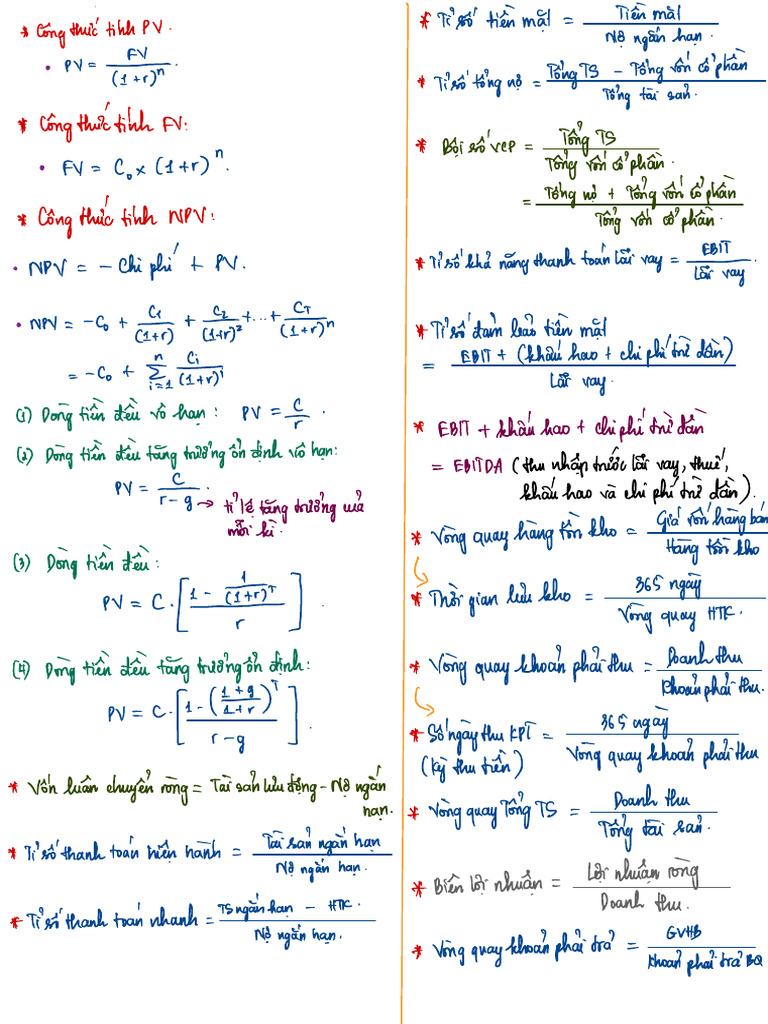 * Công thức tính PV.
• PV = FV / (1+r)^n.
* Công thức tính FV:
• FV = C₀ x (1+r)^n.
* Công thức tính NPV:
• NPV = - Chi phí + PV.
• NPV = -C₀ + C₁/(1+r) + C₂/(1+r)² + ... + C_T/(1+r)^n
= -C₀ + Σ_{i=1}^{n} C_i/(1+r)^i
(1) Dòng tiền đều vô hạn: PV = C/r.
(2) Dòng tiền đều tăng trưởng ổn định vô hạn:
PV = C/(r-g) → tỉ lệ tăng trưởng của
mỗi kì.
(3) Dòng tiền đều:
PV = C · [(1 - 1/(1+r)^T) / r].
(4) Dòng tiền đều tăng trưởng ổn định:
PV = C · [(1 - ((1+g)/(1+r))^T) / (r-g)].
* Vốn luân chuyển ròng = Tài sản lưu động - Nợ ngắn
hạn.
* Tỉ số thanh toán hiện hành = Tài sản ngắn hạn / Nợ ngắn hạn.
* Tỉ số thanh toán nhanh = TS ngắn hạn - HTK / Nợ ngắn hạn.
* Tỉ số tiền mặt = Tiền mặt / Nợ ngắn hạn.
* Tỉ số tổng nợ = Tổng TS - Tổng vốn cổ phần / Tổng tài sản.
* Bội số VCP = Tổng TS / Tổng vốn cổ phần.
= Tổng nợ + Tổng vốn cổ phần / Tổng vốn cổ phần.
* Tỉ số khả năng thanh toán lãi vay = EBIT / Lãi vay.
* Tỉ số đảm bảo tiền mặt
= EBIT + (khấu hao + chi phí trừ dần) / Lãi vay.
* EBIT + khấu hao + chi phí trừ dần
= EBITDA (thu nhập trước lãi vay, thuế,
khấu hao và chi phí trừ dần).
* Vòng quay hàng tồn kho = Giá vốn hàng bán / Hàng tồn kho
* Thời gian lưu kho = 365 ngày / Vòng quay HTK.
* Vòng quay khoản phải thu = Doanh thu / Khoản phải thu.
* Số ngày thu KPT = 365 ngày / Vòng quay khoản phải thu
(Kỳ thu tiền)
* Vòng quay Tổng TS = Doanh thu / Tổng tài sản.
* Biên lợi nhuận = Lợi nhuận ròng / Doanh thu.
* Vòng quay khoản phải trả = GVHB / Khoản phải trả BQ